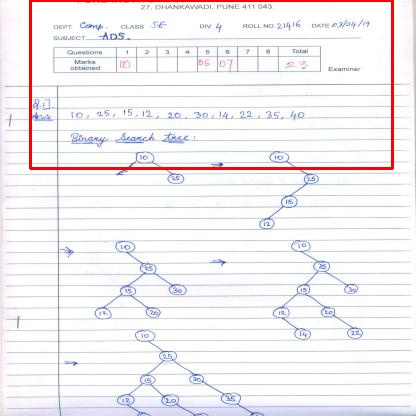 27, DHANKAWADI, PUNE 411 043.
DEPT. Comp. CLASS SE DIV 4 ROLL NO. 21416 DATE 03/04/19
SUBJECT ADS.
Questions 1 2 3 4 5 6 7 8 Total
Marks obtained 10 06 07 23
Examiner
Q.1].
Ans 10, 25, 15, 12, 20, 30, 14, 22, 35, 40
Binary Search tree:
10 → 10
25 25
15
12
10 → 10
25 25
15 30 15 30
12 20 12 20
14 22
10
25
15 30
12 20 35